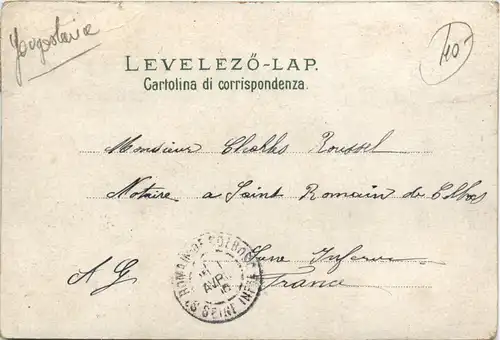 Yougoslavie
40-
LEVELEZŐ-LAP.
Cartolina di corrispondenza.
Monsieur Charles Roussel
Notaire a Saint Romain de Colbosc
Seine Inferre
A G
France
ROMAIN-DE-COLBOSC
AVRIL
SEINE INFRE